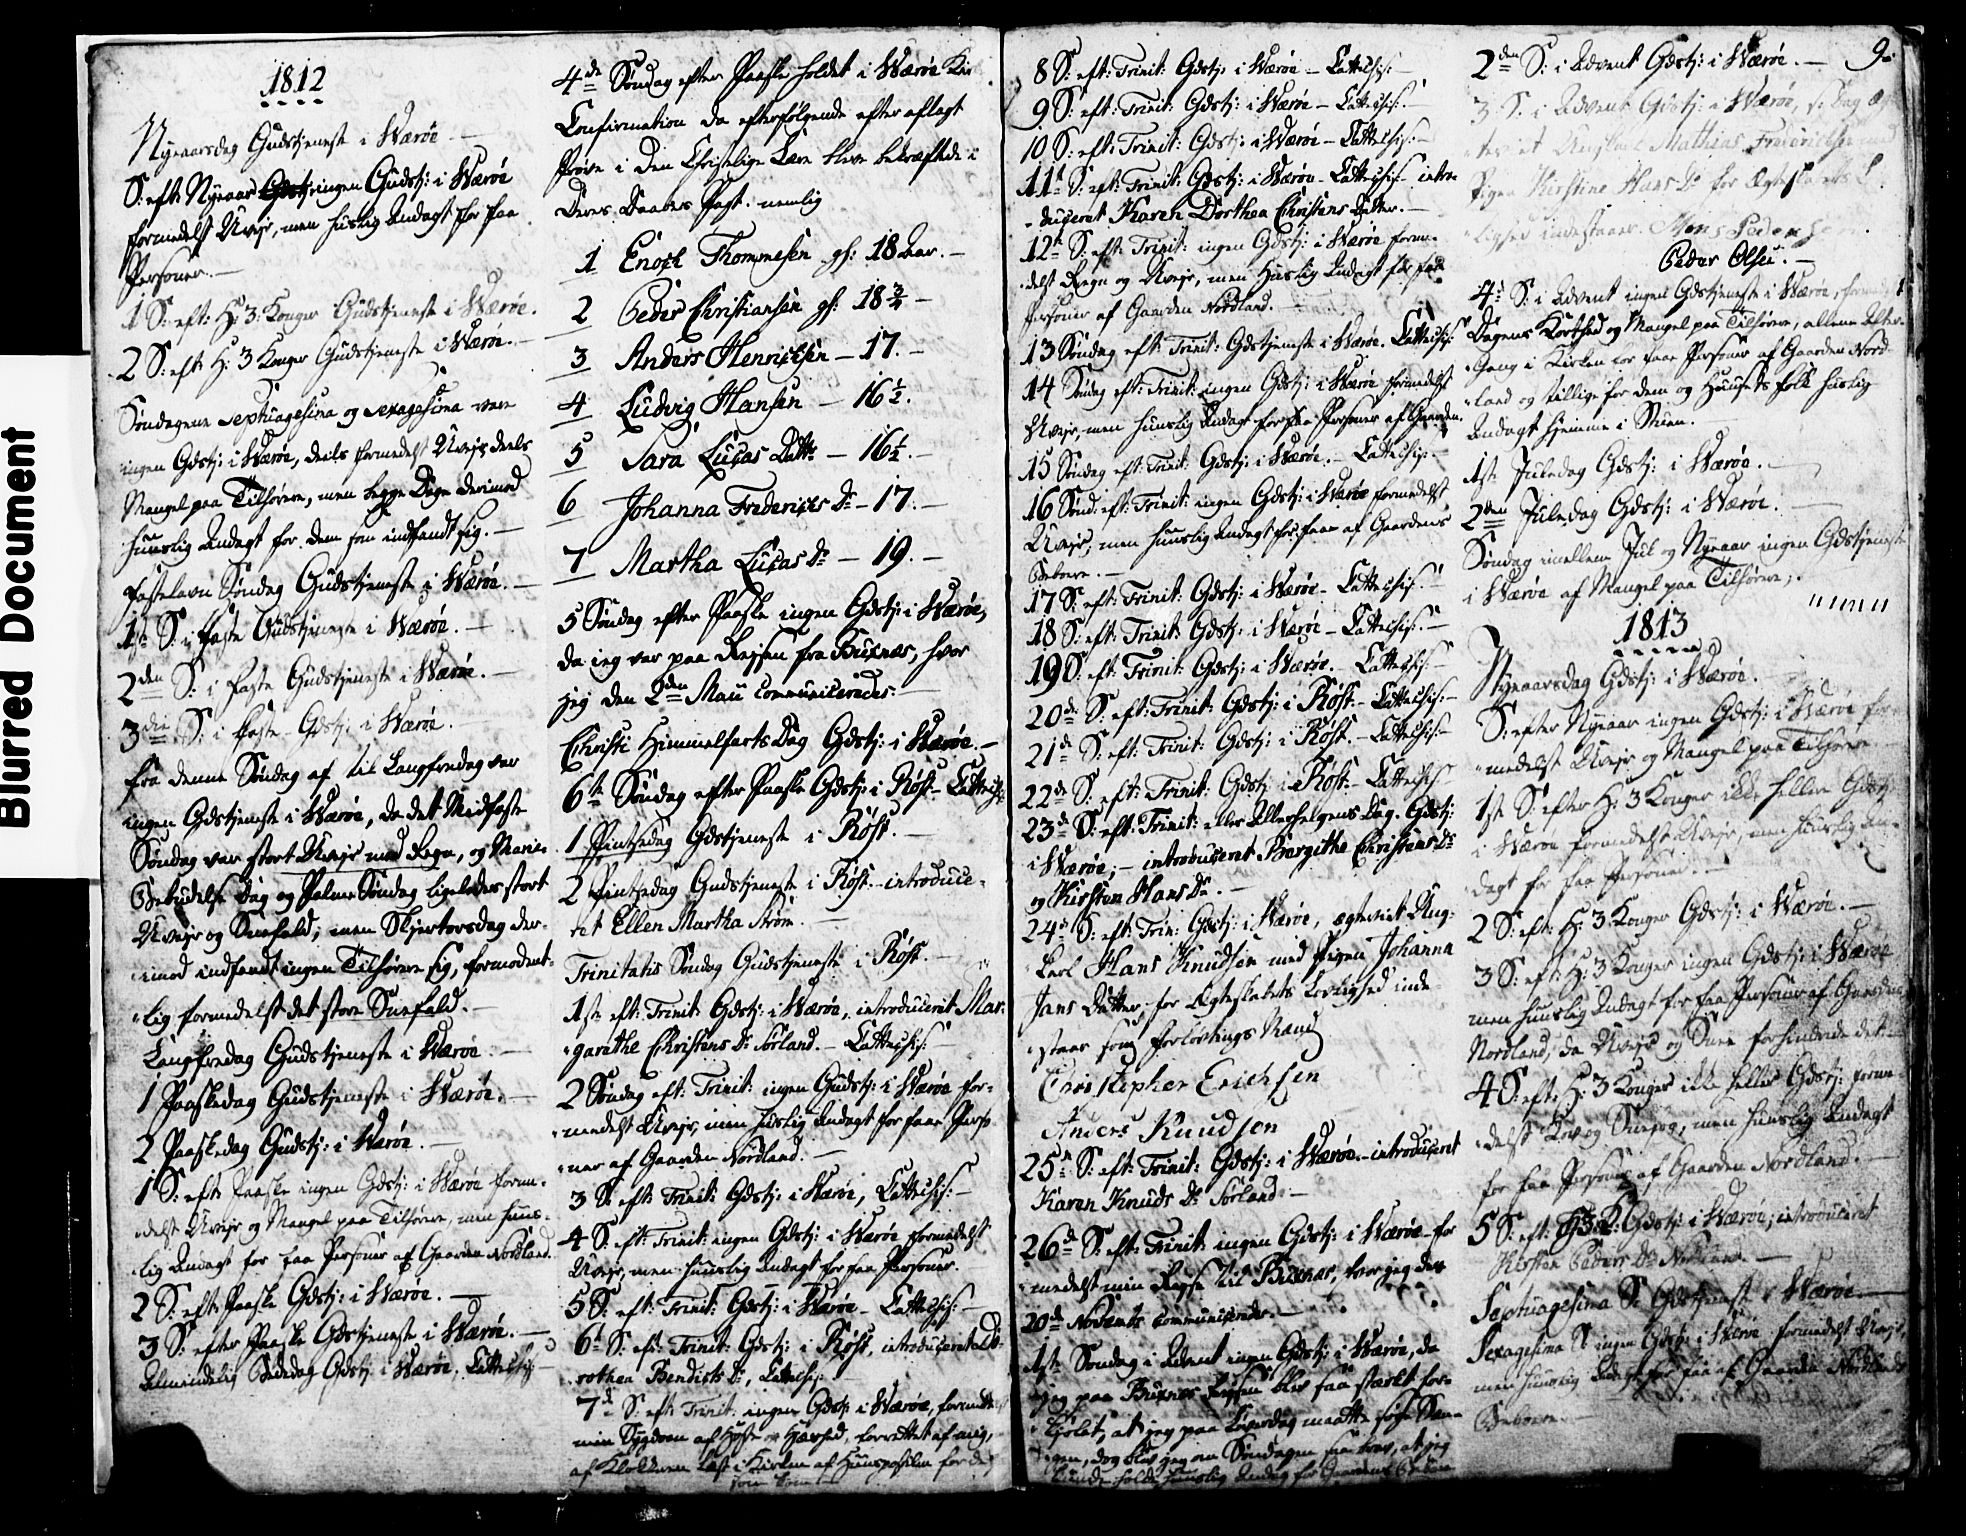 Blurred Document
1812
Nyeaarsdag Gudstjeneste i Værøe. —
S: eft: Nyeaar ingen Gudstj: i Værøe
formedelst Uvejr, men huuslig Andagt for faa
Personer. —
1 S: eft: H: 3: Konger Gudstjeneste i Værøe.
2 S: eft: H: 3 Konger Gudstjeneste i Værøe. —
Søndagene Septuagesima og Sexagesima var
ingen Gdstj: i Værøe, deels formedelst Uvejr deels
Mangel paa Tilhørere, men begge Dage derimod
huuslig Andagt for dem som indfandt sig. —
Fastelavn Søndag Gudstjeneste i Værøe. —
1ste S: i Faste Gudstjeneste i Værøe. —
2den S: i Faste Gudstjeneste i Værøe. —
3die S: i Faste Gdstj: i Værøe.
Fra denne Søndag af til Langfredag var
ingen Gdstjeneste i Værøe, da det Midfaste
Søndag var stort Uvejr med Regn, og Mariæ
Bebudelse Dag og Palme Søndag ligeledes stort
Uvejr og Sneefald; men Skjertorsdag der-
imod indfandt ingen Tilhørere sig, formodent-
lig formedelst det store Sneefald. —
Langfredag Gudstjeneste i Værøe. —
1 Paaskedag Gudstjeneste i Værøe. —
2 Paaskedag Gudstj: i Værøe. —
1 S: eft: Paaske ingen Gdstj: i Værøe forme-
delst Uvejr og Mangel paa Tilhørere, men huus-
lig Andagt for faa Personer af Gaarden Nordland.
2 S: eft: Paaske Gdstj: i Værøe. —
3 S: efter Paaske Gdstjeneste i Værøe. —
Almindelig Bededag Gdstj: i Værøe, Cattechis: —
4de Søndag efter Paaske holdet i Værøe Kir
Confirmation da efterfølgende efter aflagt
Prøve i den Christelige Lære bleve bekræftede i
Deres Daabes Pagt. nemlig
1 Enoch Thommesen gl: 18 Aar. —
2 Peder Christiansen gl: 18 3/4 —
3 Anders Henrichsen — 17. —
4 Ludvig Hansen — 16 1/2.
5 Sara Lucas Datter — 16 1/2. —
6 Johanna Frederichs Dr — 17. —
7 Martha Lucas Dr — 19. —
5 Søndag efter Paaske ingen Gdstj: i Værøe,
da jeg var paa Rejsen fra Buxnæs, hvor
jeg den 2den Maii communicerede. —
Christi Himmelfarts Dag Gdstj: i Værøe. —
6te Søndag efter Paaske Gdstj: i Røst. — Cattechis:
1 Pintsedag Gdstjeneste i Røst. —
2 Pintsedag Gudstjeneste i Røst. — introduce-
ret Ellen Martha Strøm. —
Trinitatis Søndag Gudstjeneste i Røst. —
1ste eft: Trinit: Gdstj: i Værøe, introduceret Mar-
garethe Christens Dr Sørland. — Cattechis: —
2 Søndag eft: Trinit: ingen Gudstj: i Værøe for-
medelst Uvejr, men huuslig Andagt for faae Perso-
ner af Gaarden Nordland. —
3 S: eft: Trinit: Gdstj: i Værøe, Cattechis: —
4 S: eft: Trinit: ingen Gdstj: i Værøe formedelst
Uvejr, men huuslig Andagt for faa Personer.
5 S: eft: Trinit: Gdstj: i Værøe — Cattechis: —
6te S: eft: Trinit: Gdstj: i Røst, introduceret Do-
rothea Bendicts Dr, Cattechis:
7de S: eft: Trinit: ingen Gdstj: i Værøe, formedelst
min Sygdom af Hoste og Hæshed, forrettet af mig,
af Klokkeren læst i Kirken af Huuspostillen for de
som kom
8 S: eft: Trinit: Gdstj: i Værøe — Cattechis: —
9 S: eft: Trinit: Gdstj: i Værøe — Cattechis: —
10 S: eft: Trinit: Gdstj: i Værøe — Cattechis: —
11te S: eft: Trinit: Gdstj: i Værøe — Cattechis: intro-
duceret Karen Dorthea Christens Datter. —
12te S: eft: Trinit: ingen Gdstj: i Værøe forme-
delst Regn og Uvejr, men huuslig Andagt for faa
Personer af Gaarden Nordland. —
13 Søndag eft: Trinit: Gdstjeneste i Værøe. Cattechis:
14 Søndag eft: Trinit: ingen Gdstj: i Værøe formedelst
Uvejr, men huuslig Andagt for faa Personer af Gaarden.
15 Søndag eft: Trinit: Gdstj: i Værøe. — Cattechis: —
16 Sønd: eft: Trinit: ingen Gdstj: i Værøe formedelst
Uvejr, men huuslig Andagt for faae af Gaardens
Beboere. —
17 S: eft: Trinit: Gdstj: i Værøe — Cattechis: —
18 S: eft: Trinit: Gdstj: i Værøe — Cattechis: —
19 S: eft: Trinit: Gdstj: i Værøe. — Cattechis: —
20de S: eft: Trinit: Gdstj: i Røst. — Cattechis: —
21de S: eft: Trinit: Gdstj: i Røst. — Cattechis: —
22de S: eft: Trinit: Gdstj: i Røst. — Cattechis:
23de S: eft: Trinit: eller Allehelgens Dag. Gdstj:
i Værøe; — introduceret Bergithe Christens Dr
og Kirsten Hans Dr. —
24de S: eft: Trin: Gdstj: i Værøe, ægteviet Ung-
karl Hans Knudsen med Pigen Johanna
Jans Datter, for Ægteskabets Lovlighed inde
staar som Forlovnings Mænd
Christopher Erichsen
Anders Knudsen
25de S: eft: Trinit: Gdstj: i Værøe. — introduceret
Karen Knuds Dr Sørland. —
26de S: eft: Trinit: ingen Gdstj: i Værøe for
medelst min Rejse til Buxnæs, hvor jeg den
20de Novembr communicerede. —
1ste Søndag i Advent ingen Gdstj: i Værøe, da
jeg paa Buxnæs Rejsen blev saa stærkt for-
kjølet, at jeg paa Løverdag maatte søge Sen-
gen, dog blev jeg om Søndagen saa brav, at jeg
kunde holde huuslig Andag for Gaardens Beboere
9.
2den S: i Advent Gdstj: i Værøe. —
3 S: i Advent Gdstj: i Værøe, s: Dag æg-
teviet Ungkarl Mathias Fredrichsen med
Pigen Kirstine Hans Dr for Ægteskabets L
lighed indestaaer. Mons Pedersen
Peder Olsen. —
4de S: i Advent ingen Gdstjeneste i Værøe, formedelst
Dagens Korthed og Mangel paa Tilhørere, allene Alter-
gang i Kirken for faae Personer af Gaarden Nord-
land og tillige for dem og Huusets Folk huslig
Andagt hjemme i Stuen.
1ste Juledag Gdstj: i Værøe. —
2den Juledag Gdstj: i Værøe. —
Søndag imellem Jul og Nyeaar ingen Gdstjeneste
i Værøe af Mangel paa Tilhørere;
1813
Nyeaarsdag Gdstj: i Værøe.
S: efter Nyeaar ingen Gdstj: i Værøe for-
medelst Uvejr og Mangel paa Tilhørere
1ste S: efter H: 3 Konger ikke heller Gdstj:
i Værøe formedelst Uvejr, men huuslig An-
dagt for faa Personer. —
2 S: eft: H: 3 Konger Gdstj: i Værøe. —
3 S: eft: H: 3 Konger ingen Gdstj: i Værøe
men huuslig Andagt for faa Personer af Gaarden
Nordland, da Uvejr og Snee forhindrede det. —
4 S: eft: H: 3 Konger ikke heller Gdstj: forme-
delst Kov og Sneefog, men huuslig Andagt
for faa Personer af Gaarden Nordland. —
5 S: eft: H: 3 K: Gdstj: i Værøe, introduceret
Kirsten Peders Dr Nordland. —
Septuagesima S: Gdstjeneste i Værøe. —
Sexagesima S: ingen Gdstj: i Værøe formedelst Uvejr,
men huuslig Andagt for faa af Gaarden Nordlands
Beboere. —